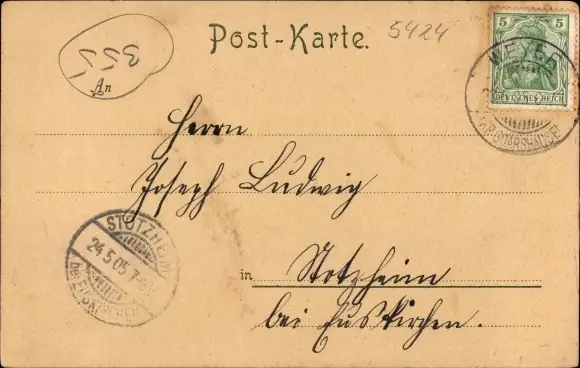 Post-Karte.
5424
355
An
5 5
DEUTSCHES REICH
WEYER
(KR. ST. GOARSHAUSEN)
Herrn
Joseph Ludwig
in Stotzheim
bei Euskirchen.
STOTZHEIM
24.5.05. 7-8
bei EUSKIRCHEN